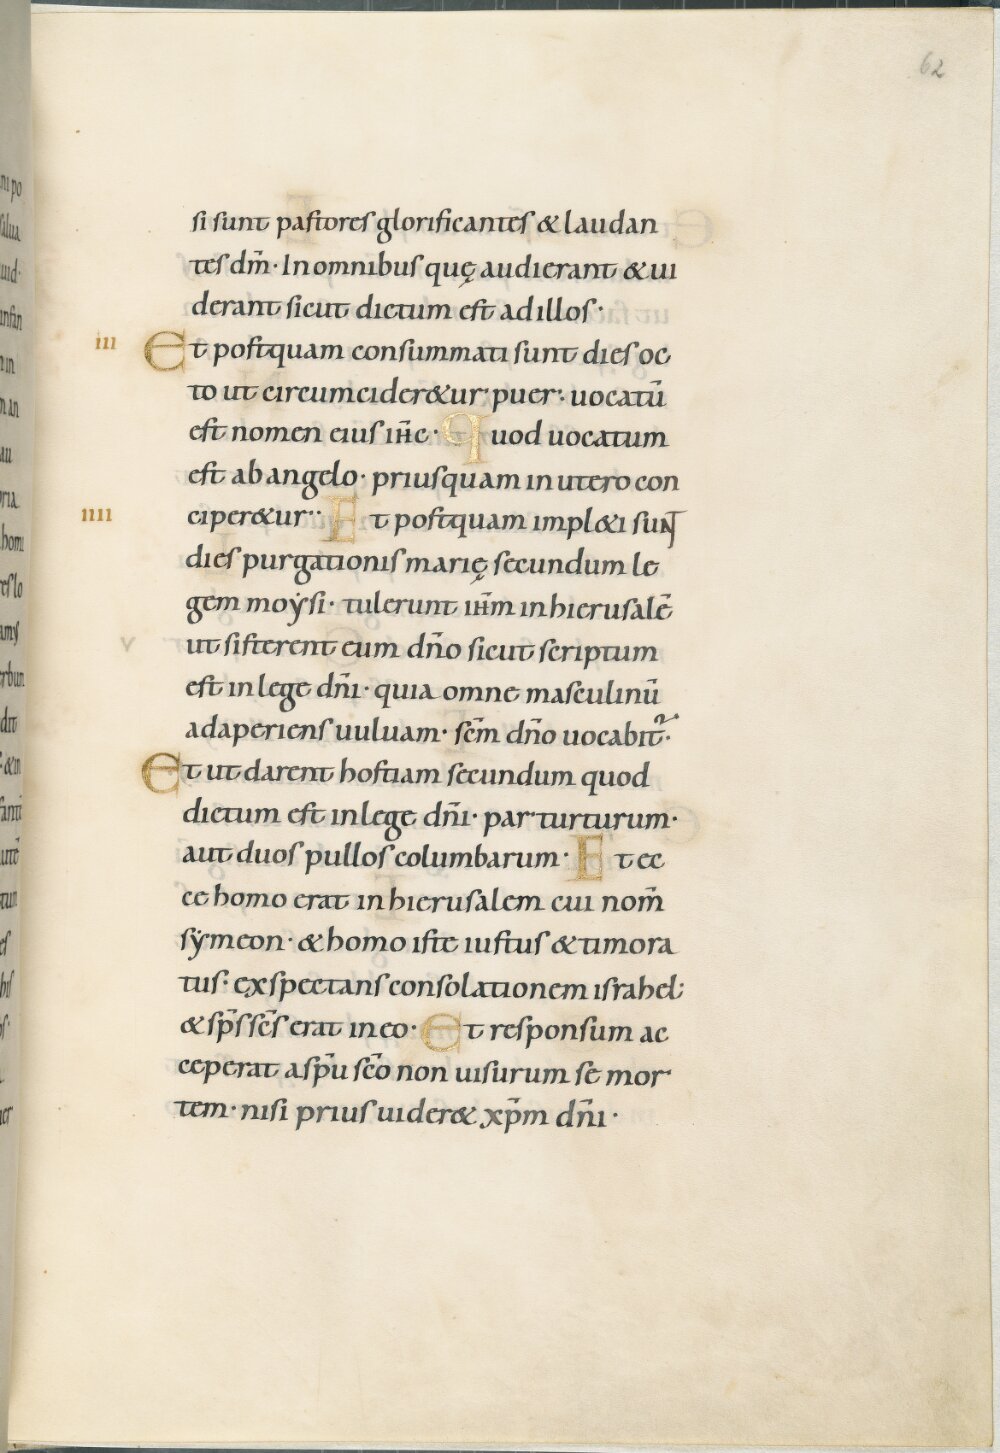 62
si sunt pastores glorificantes & laudan
tes dm̄· In omnibus quę audierant & ui
derant sicut dictum est ad illos·
iii Et postquam consummati sunt dies oc
to ut circumcider&ur puer· uocatū
est nomen eius ih̄c· Quod uocatum
est ab angelo· priusquam in utero con
ciper&ur·· iiii Et postquam impl&i sunt
dies purgationis marię secundum le
gem moẏsi· tulerunt ih̄m in hierusalē
v ut sisterent eum dn̄o sicut scriptum
est in lege dn̄i· quia omne masculinū
adaperiens uuluam· sc̄m dn̄o uocabit᷑·
Et ut darent hostiam secundum quod
dictum est in lege dn̄i· par turturum·
aut duos pullos columbarum· Et ec
ce homo erat in hierusalem cui nom̄
sẏmeon· & homo iste iustus & timora
tus· exspectans consolationem israhel·
& sp̄s sc̄s erat in eo· Et responsum ac
ceperat a sp̄u sc̄o non uisurum se mor
tem· nisi prius uider& xp̄m dn̄i·